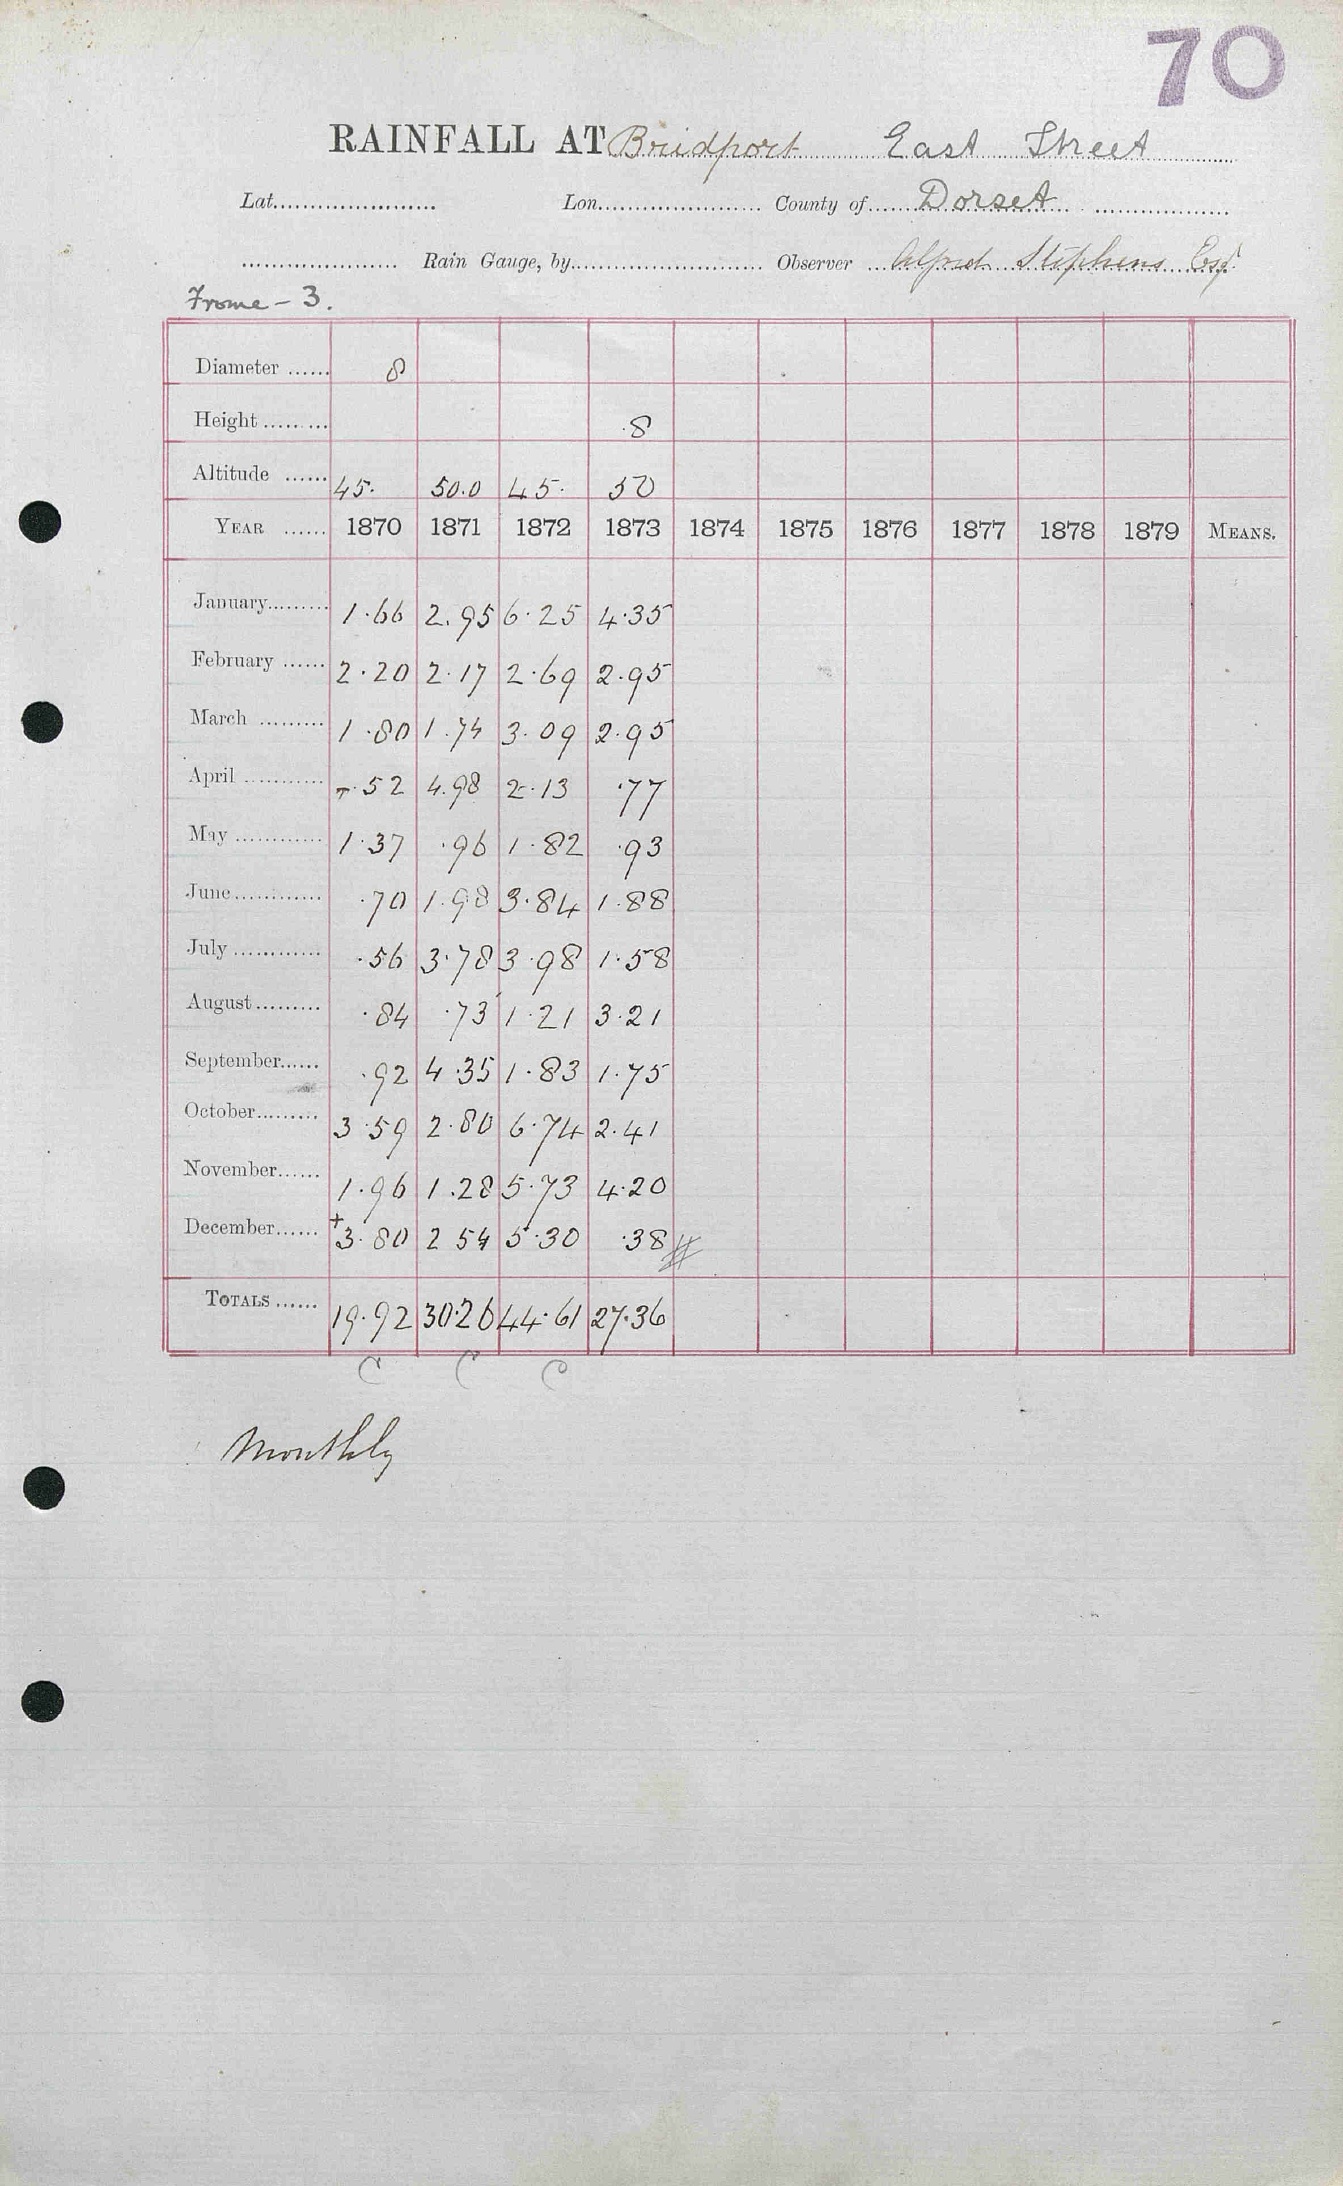 70
RAINFALL AT Bridport East Street
Lat. Lon. County of Dorset
Rain Gauge, by Observer Alfred Stephens Esq.
Frome - 3.
Diameter 8
Height .8
Altitude 45. 50.0 45. 50
YEAR 1870 1871 1872 1873 1874 1875 1876 1877 1878 1879 MEANS.
January 1.66 2.95 6.25 4.35
February 2.20 2.17 2.69 2.95
March 1.80 1.74 3.09 2.95
April .52 4.98 2.13 .77
May 1.37 .96 1.82 .93
June .70 1.98 3.84 1.88
July .56 3.78 3.98 1.58
August .84 .73 1.21 3.21
September .92 4.35 1.83 1.75
October 3.59 2.80 6.74 2.41
November 1.96 1.28 5.73 4.20
December +3.80 2 54 5.30 .38 #
TOTALS 19.92 30.26 44.61 27.36
C C C
Monthly